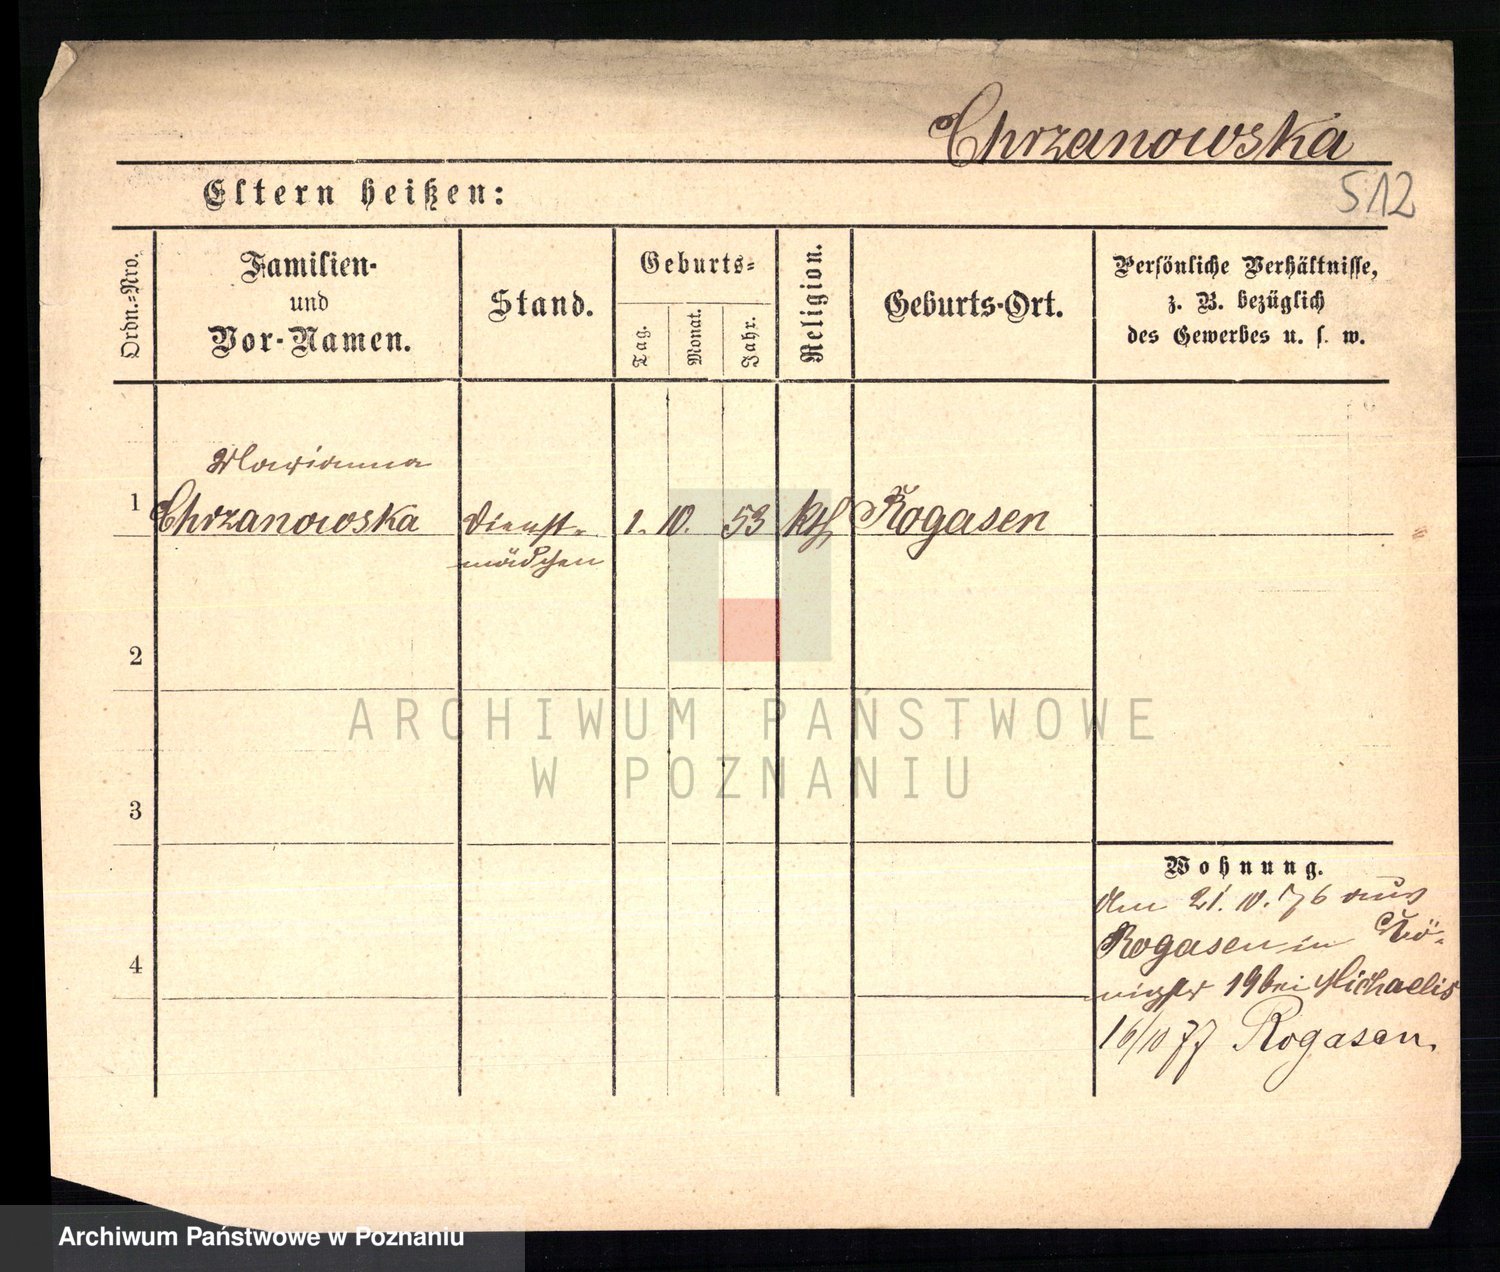 Chrzanowska
512
Eltern heißen:
Ordn.-Nro.
Familien-
und
Vor-Namen.
Stand.
Geburts-
Tag.
Monat.
Jahr.
Religion.
Geburts-Ort.
Persönliche Verhältnisse,
z. B. bezüglich
des Gewerbes u. s. w.
Marianna
1 Chrzanowska Dienst- 1. 10. 53 kth Rogasen
mädchen
2
3
4
Wohnung.
den 21.10.76 aus
Rogasen in Kö-
nigstr 19 bei Michaelis
16/10 77 Rogasen.
ARCHIWUM PAŃSTWOWE
W POZNANIU
Archiwum Państwowe w Poznaniu